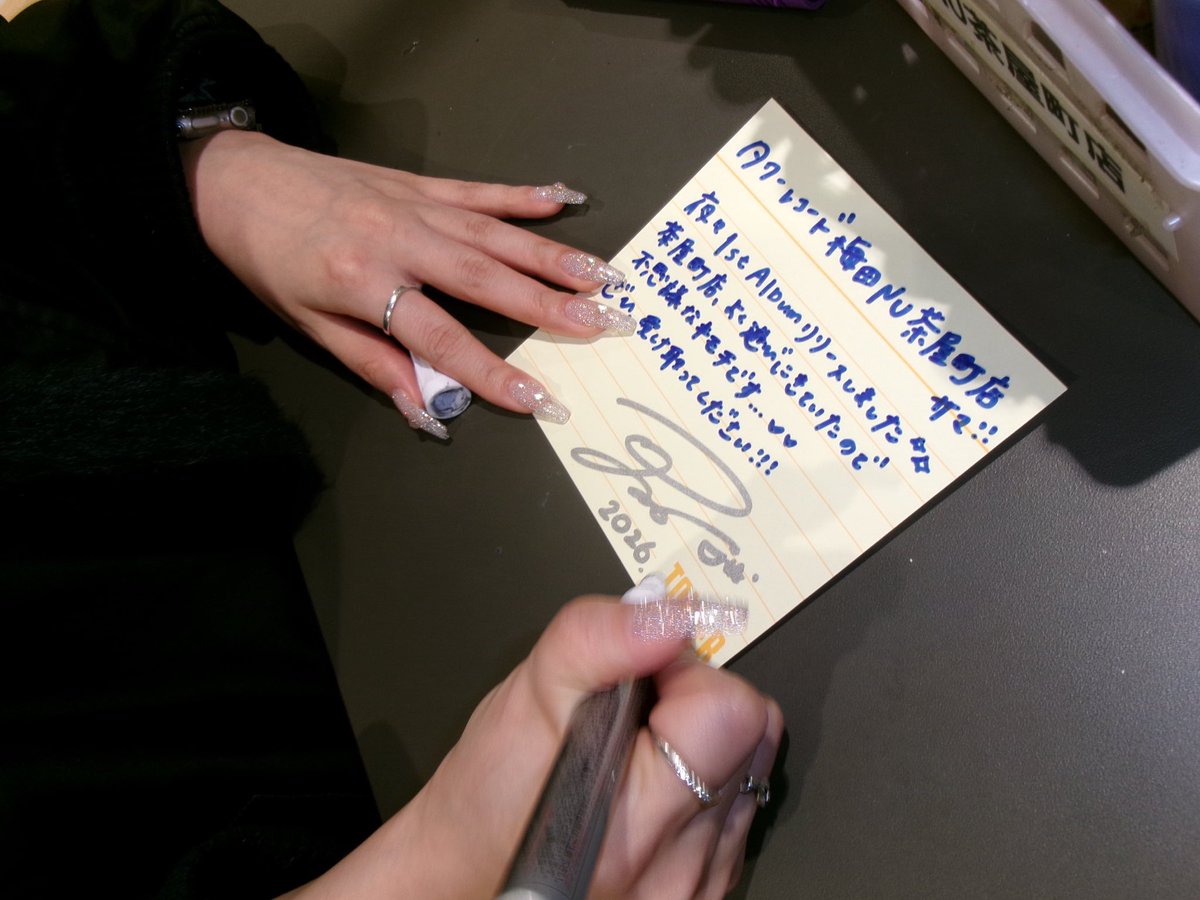 タワーレコード梅田NU茶屋町店
サマ!!
夜々1st Albumリリースしました
茶屋町店、よく遊びにきていたので
不思議なキモチです…♥♥
ぜひ受け取ってください!!!
2026.
NU茶屋町店